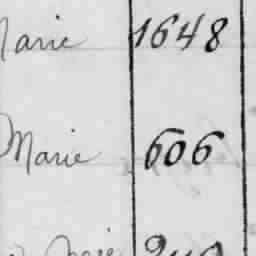 Marie 1648
Marie 606